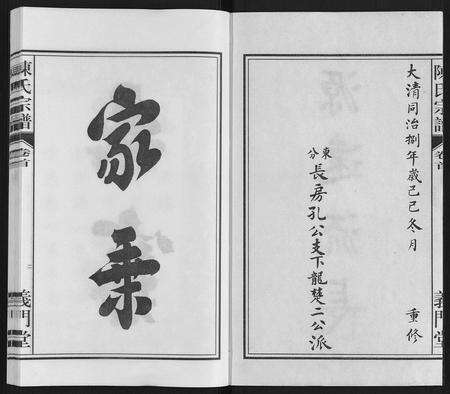 陳氏宗譜
卷首
義門堂
大清同治捌年歲己巳冬月
重修
東分
長房孔公支下龍楚二公派
家乘
陳氏宗譜
卷首
義門堂